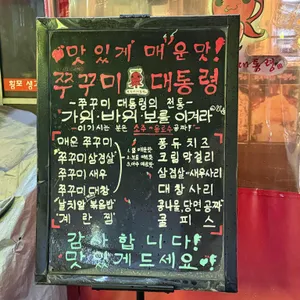 맛있게 매운맛!
쭈꾸미 대통령
-쭈꾸미 대통령의 전통-
"가위·바위·보를 이겨라"
이기시는 분은 소주
매운 쭈꾸미
쭈꾸미삼겹살
쭈꾸미 새우
쭈꾸미 대창
날치알 볶음밥
계란찜
퐁듀치즈
크림막걸리
삼겹살·새우사리
대창사리
콩나물, 당면
쿨피스
감사합니다!
맛있게드세요